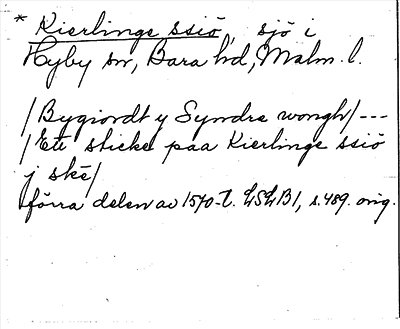 * Kierlinge ssiö, sjö i
Hyby sn, Bara hd, Malm. l.
/Bygiordt y Syndre wongh/ ---
/Ett sticke paa Kierlinge ssiö
j skē/
förra delen av 1540-t. LSLB1, s. 489. orig.